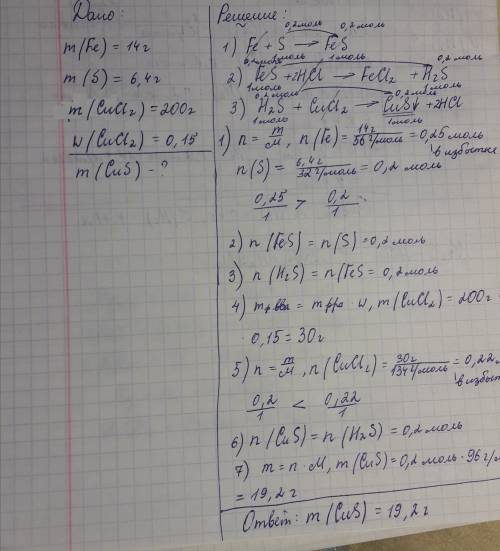 Дано:
m(Fe) = 14г
m(S) = 6,4г
m(CuCl₂) = 200г
w(CuCl₂) = 0,15
m(CuS) - ?
Решение:
0,2моль 0,2моль
1) Fe + S → FeS
1моль 0,2моль
2) FeS + 2HCl → FeCl₂ + H₂S
0,2моль
3) H₂S + CuCl₂ → CuS↓ + 2HCl
1моль 1моль
1) n = m/M, n(Fe) = 14г/56г/моль = 0,25 моль
в избытке
n(S) = 6,4г/32г/моль = 0,2 моль
0,25/1 > 0,2/1
2) n(FeS) = n(S) = 0,2 моль
3) n(H₂S) = n(FeS = 0,2моль
4) mр.ва = mрра · w, m(CuCl₂) = 200г ·
· 0,15 = 30г
5) n = m/M, n(CuCl₂) = 30г/134г/моль = 0,22
в избы
0,2/1 < 0,22/1
6) n(CuS) = n(H₂S) = 0,2 моль
7) m = n · M, m(CuS) = 0,2 моль · 96г/м
= 19,2г
Ответ: m(CuS) = 19,2г